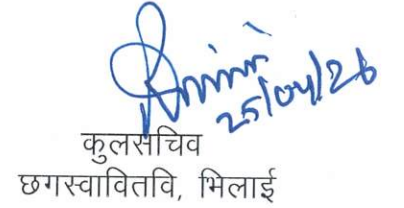 25/04/26
कुलसचिव
छगस्वावितवि, भिलाई